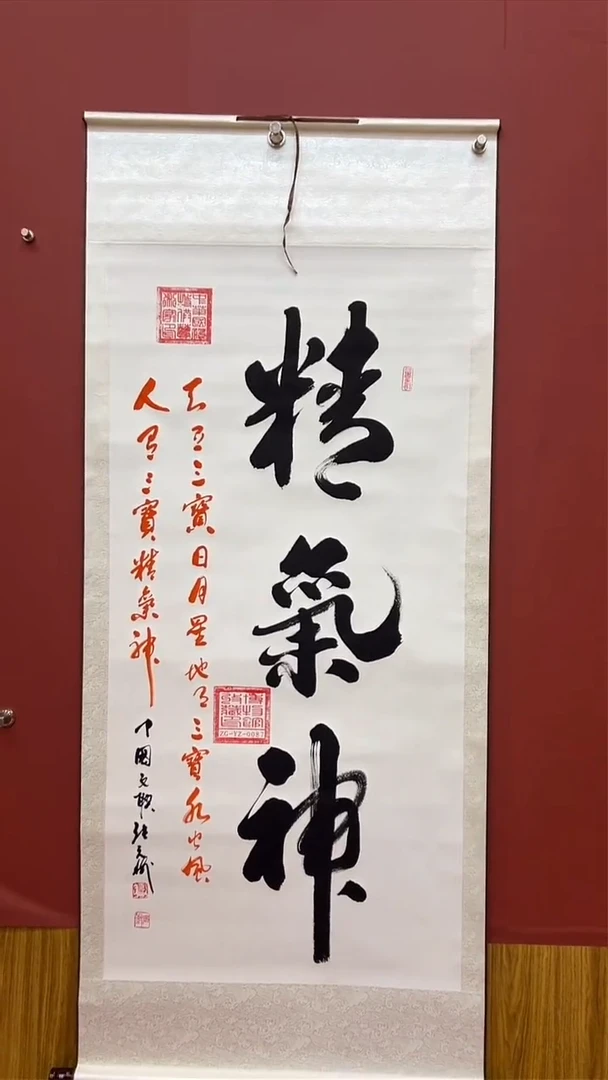 精氣神
天有三寶日月星地有三寶水火風
人有三寶精氣神
中國文聯
ZG-YZ-0087